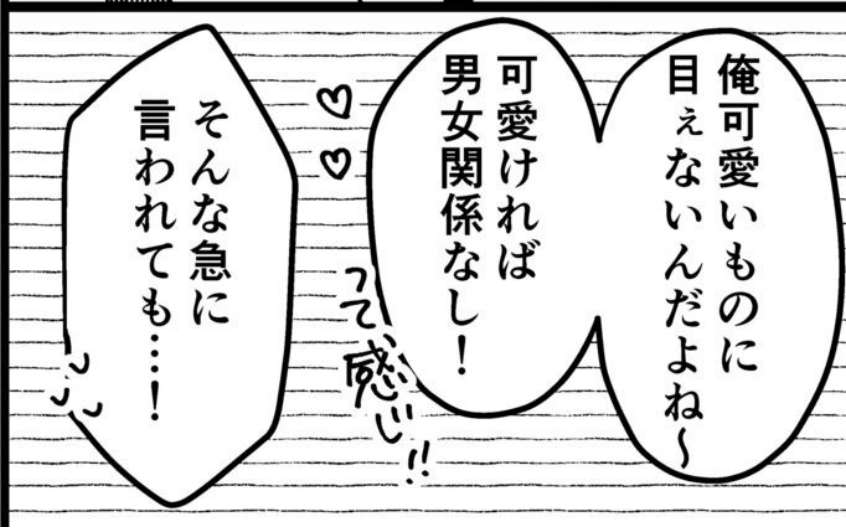 俺可愛いものに
目ぇないんだよね〜
可愛ければ
男女関係なし！
って感じ!!
そんな急に
言われても…！